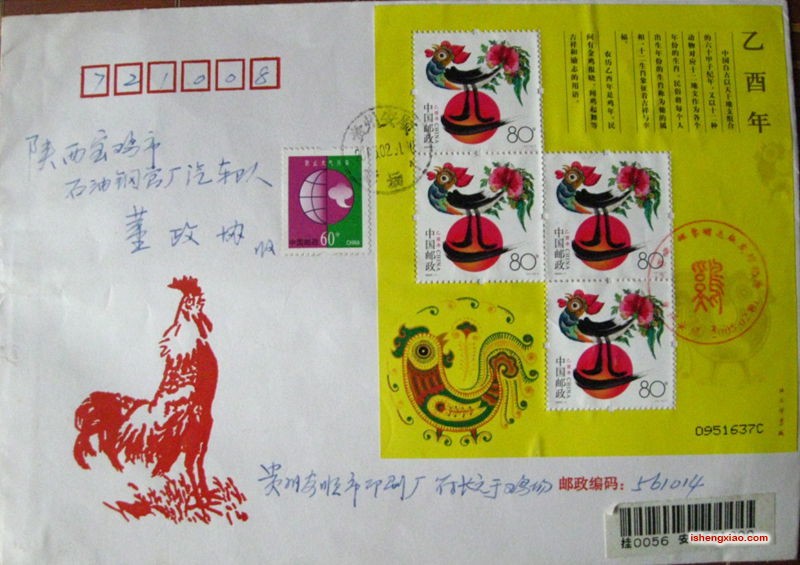 721008
陕西宝鸡市
石油钢管厂汽车队
董政协 收
防止大气污染
中国邮政 60分 CHINA
02.1
乙酉年
中国自古以天干地支组合
的六十甲子纪年,又以十二种
动物对应十二地支作为各个
年份的生肖,民俗将每个人
出生年份的生肖称为他的属
相,十二生肖象征着吉祥与幸
福。
农历乙酉年是鸡年,民
间有金鸡报晓、闻鸡起舞等
吉祥和励志的用语。
乙酉年
中国邮政 CHINA
80分
乙酉年
中国邮政 CHINA
80分
乙酉年
中国邮政 CHINA
80分
乙酉年
中国邮政 CHINA
80分
鸡
2005.02
0951637C
贵州安顺市印刷厂
邮政编码:561014
桂0056 安
ishengxiao.com